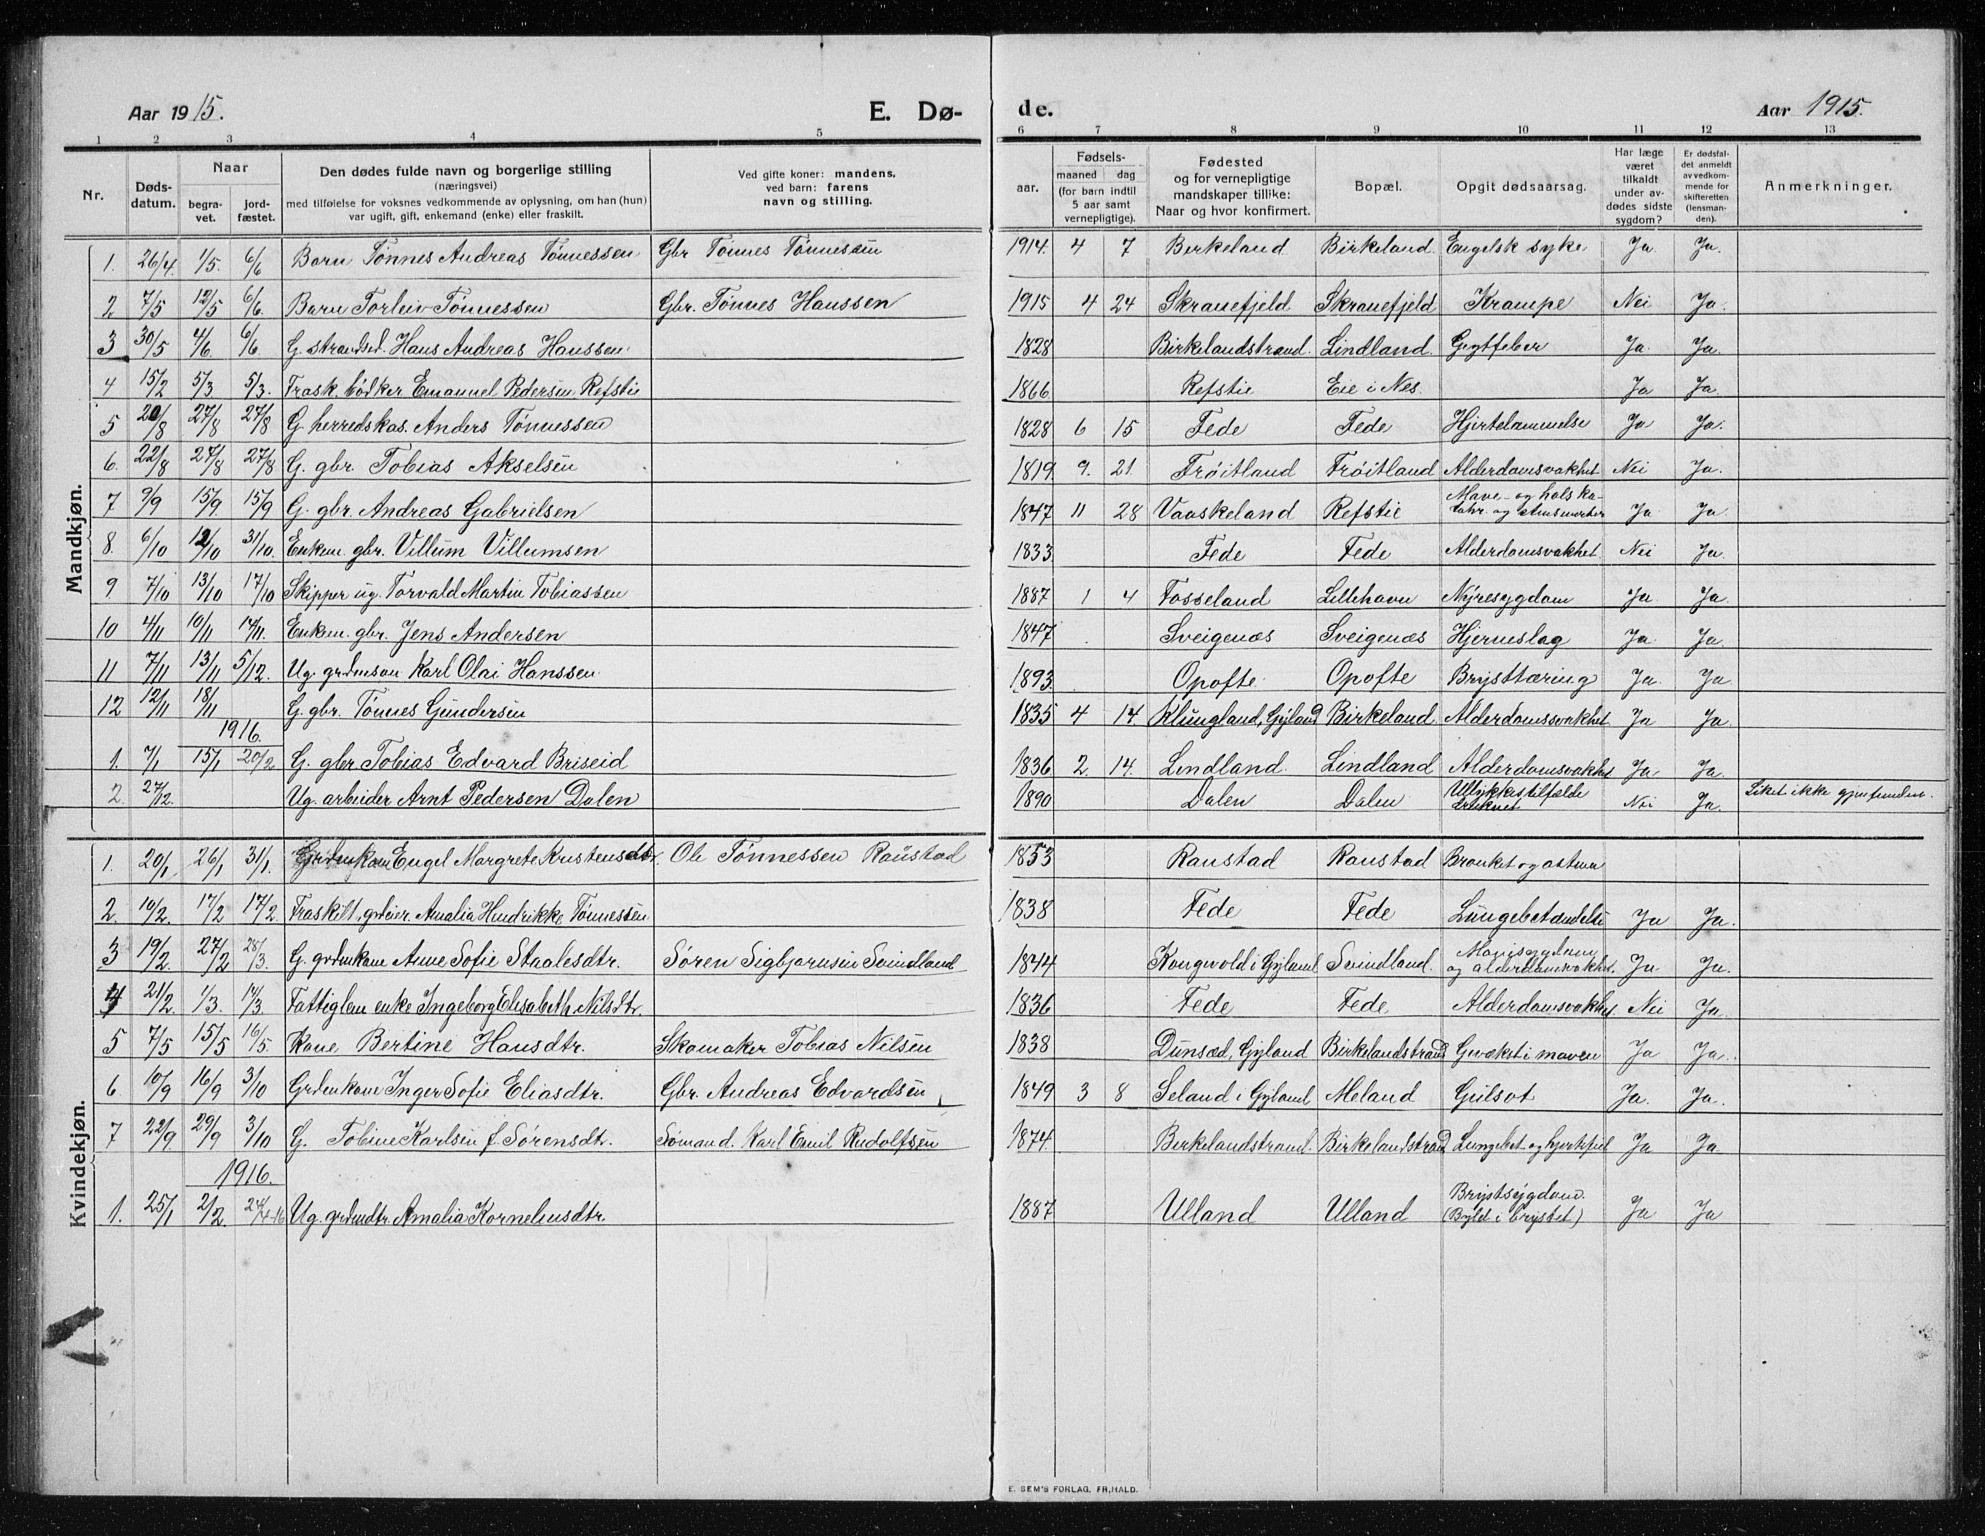 Aar 1915. E. Dø- de. Aar 1915.
1 2 3 4 5 6 7 8 9 10 11 12 13
Nr. Døds-datum. Naar begra-vet. jord-fæstet. Den dødes fulde navn og borgerlige stilling (næringsvei) med tilføielse for voksnes vedkommende av oplysning, om han (hun) var ugift, gift, enkemand (enke) eller fraskilt. Ved gifte koner: mandens, ved barn: farens navn og stilling. aar. Fødsels- maaned dag (for barn indtil 5 aar samt vernepligtige). Fødested og for vernepligtige mandskaper tillike: Naar og hvor konfirmert. Bopæl. Opgit dødsaarsag. Har læge været tilkaldt under av-dødes sidste sygdom? Er dødsfal-det anmeldt av vedkom-mende for skifteretten (lensman-den). Anmerkninger.
Mandkjøn.
1. 26/4. 1/5. 6/6 Barn Tønnes Andreas Tønnessen Gbr Tønnes Tønnesen 1914. 4 7 Birkeland Birkeland Engelsk syke Ja Ja.
2 7/5 12/5 6/6. Barn Torleiv Tønnessen Gbr. Tønnes Hanssen 1915 4 24 Skranefjeld Skranefjeld Krampe Nei Ja.
3 30/5 4/6. 6/6. G. strandsd. Hans Andreas Hanssen. 1828 Birkelandstrand. Lindland. Gigtfeber Ja. Ja.
4 15/2 5/3 5/3. Frask. bødker Emanuel Pedersen Refstie 1866. Refstie Eie i Nes. Ja Ja.
5 20/8 27/8 27/8 G. herredskas. Anders Tønnessen 1828 6 15 Fede Fede Hjertelammelse Ja Ja.
6. 22/8 27/8 27/8 G. gbr. Tobias Akselsen 1819. 9. 21. Frøitland Frøitland Alderdomsvakhet Nei Ja.
7 9/9 15/9 15/9 G. gbr. Andreas Gabrielsen 1847 11 28 Vaaskeland Refstie Mave- og hals ka-tahr. og Ja Ja.
8. 6/10 12/10 31/10. Enkem. gbr. Villum Villumsen 1833 Fede Fede Alderdomsvakhet Nei Ja.
9 7/10 13/10 17/10 Skipper ug. Torvald Martin Tobiassen 1887 1 4 Fosseland Lillehavn Nyresygdom Ja Ja.
10 4/11 10/11 17/11. Enkem. gbr. Jens Andersen 1847 Sveigenæs Sveigenæs Hjerneslag Ja. Ja.
11 7/11 13/11 5/12. Ug. grdmson Karl Olai Hanssen 1893. Opofte Opofte Brysttæring Ja. Ja
12 12/11 18/11 G. gbr. Tønnes Gundersen 1835 4 14 Klungland, Gyland Birkeland. Alderdomssvakhet Ja Ja.
1916.
1. 7/1 15/1 20/2 G. gbr. Tobias Edvard Briseid 1836 2. 14. Lindland. Lindland Alderdomsvakhet Ja. Ja.
2. 27/12. Ug. arbeider Arnt Pedersen Dalen 1890 Dalen Dalen Ulykkestilfælde druknet Nei Ja. Liket ikke gjenfundet.
Kvindekjøn.
1. 20/1 26/1 31/1. Grdmkone Engel Margrete Kristensdtr. Ole Tønnessen Raustad 1853 Raustad Raustad Bronket og astma
2. 10/2. 17/2 17/2 Fraskilt, grdeier. Amalia Hendrikke Tønnessen 1838 Fede Fede Lungebetændelse Ja Ja.
3 19/2. 27/2 28/3. G. grdmkone Anne Sofie Staalesdtr. Søren Sigbjørnsen Svindland 1844 Kongevold i Gyland Svindland. Mavesygdom og alderdomsvakhet. Ja. Ja.
4 21/2 1/3. 17/3. Fattiglem enke Ingeborg Elisabeth Nilsdtr. 1836 Fede Fede Alderdomsvakhet Nei Ja.
5 7/5 15/5 16/5. Kone Bertine Hansdtr. Skomaker Tobias Nilsen 1838 Dunsæd, Gyland Birkelandstrand Gevækst i maven Ja Ja.
6 10/9 16/9 3/10 Grdmkone Inger Sofie Eliasdtr. Gbr. Andreas Edvardsen 1849 3 8 Seland i Gyland Meland Gulsot Ja. Ja.
7 22/9. 29/9 3/10 G. Tobine Karlsen f. Sørensdtr. Sømand. Karl Emil Rudolfsen 1874. Birkelandstrand. Birkelandstrand Lungebet og hjertefeil Ja Ja
1916.
1. 25/1 2/2. 24/4-16 Ug. grdmdtr. Amalia Korneliusdtr. 1887 Ulland Ulland Brystsygdom. (Byld i brystet) Ja Ja
E. SEM'S FORLAG, FR.HALD.